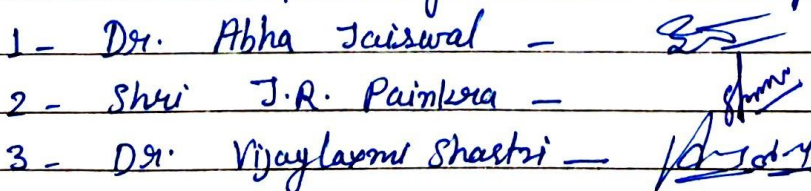 1 - Dr. Abha Jaiswal -
2 - Shri J.R. Painkra -
3 - Dr. Vijaylaxmi Shastri -